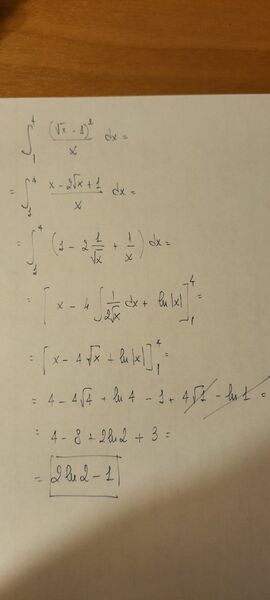 ∫₁⁴ (√x - 1)²/x dx =
= ∫₁⁴ (x - 2√x + 1)/x dx =
= ∫₁⁴ (1 - 2 1/√x + 1/x) dx =
= [x - 4 ∫ 1/(2√x) dx + ln|x|]₁⁴ =
= [x - 4√x + ln|x|]₁⁴ =
= 4 - 4√4 + ln 4 - 1 + 4√1 - ln 1 =
= 4 - 8 + 2 ln 2 + 3 =
= 2 ln 2 - 1